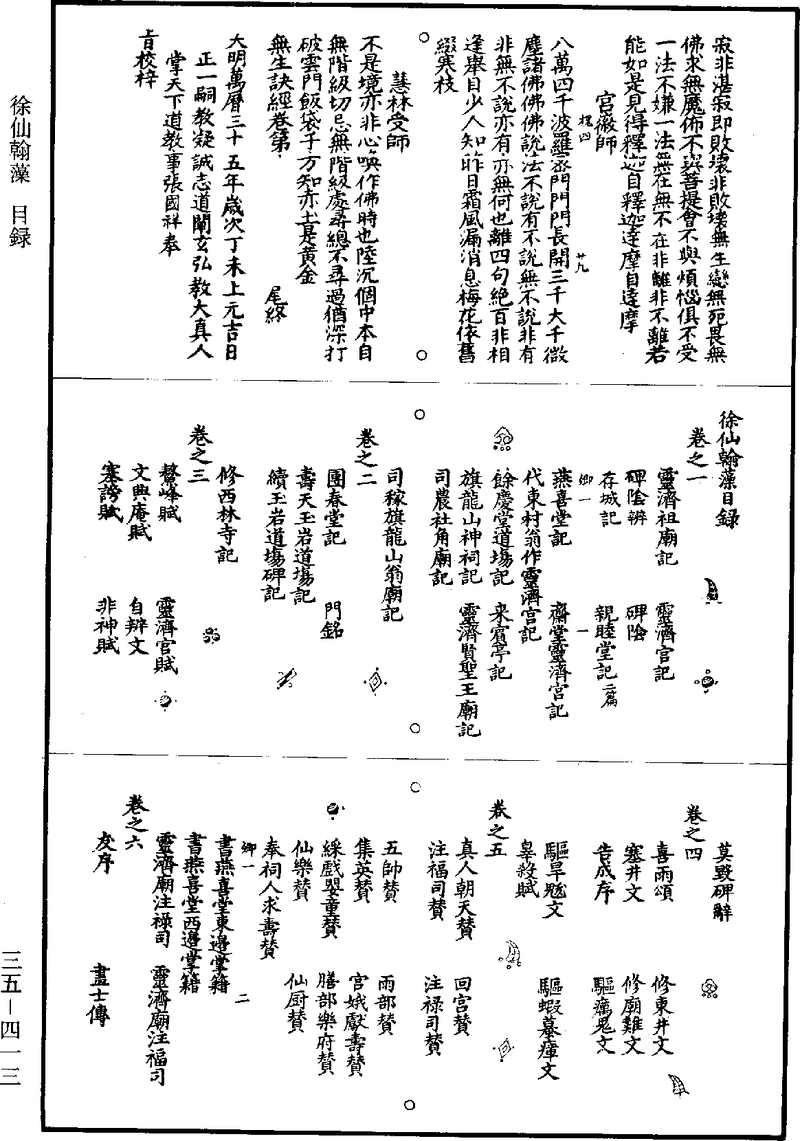 寂非湛寂即敗壞非敗壞無生戀無死畏無
佛求無魔怖不與菩提會不與煩惱俱不受
一法不嫌一法無在無不在非離非不離若
能如是見得釋迦自釋迦達摩自達摩
宮徽師
八萬四千波羅密門門門長開三千大千微
塵諸佛佛佛說法不說有不說無不說非有
非無不說亦有亦無何也離四句絕百非相
逢舉目少人知昨日霜風漏消息梅花依舊
綴寒枝
慧林受師
不是境亦非心喚作佛時也陸沉個中本自
無階級切忌無階級處尋總不尋過猶深打
破雲門飯袋子方知赤土是黃金
無生訣經卷第
尾終
大明萬曆三十五年歲次丁未上元吉日
正一嗣教凝誠志道闡玄弘教大真人
掌天下道教事張國祥奉
旨校梓
徐仙翰藻目錄
卷之一
靈濟祖廟記 靈濟宮記
碑陰辨 碑陰
存城記 親睦堂記二篇
卿一 一
燕喜堂記 齋堂靈濟宮記
代東村翁作靈濟宮記
餘慶堂道場記 來賓亭記
旗龍山神祠記 靈濟賢聖王廟記
司農社角廟記
司稼旗龍山翁廟記
卷之二
團春堂記 門銘
壽天王岩道場記
續王岩道場碑記
修西林寺記
卷之三
鰲峰賦 靈濟宮賦
文典庵賦 自辨文
塞謗賦 非神賦
莫毀碑辭
卷之四
喜雨頌 修東井文
塞井文 修廟難文
告成序 驅癘鬼文
驅旱魃文 驅蝦蟇瘴文
皋殺賦
卷之五
真人朝天贊 回宮贊
注福司贊 注祿司贊
五帥贊 雨部贊
集英贊 宮娥獻壽贊
綵戲嬰童贊 膳部樂府贊
仙樂贊 仙厨贊
奉祠人求壽贊
卿一 二
書燕喜堂東邊掌籍
書燕喜堂西邊掌籍
靈濟廟注祿司 靈濟廟注福司
卷之六
友序 畫士傳
徐仙翰藻 目録
三五－四一三